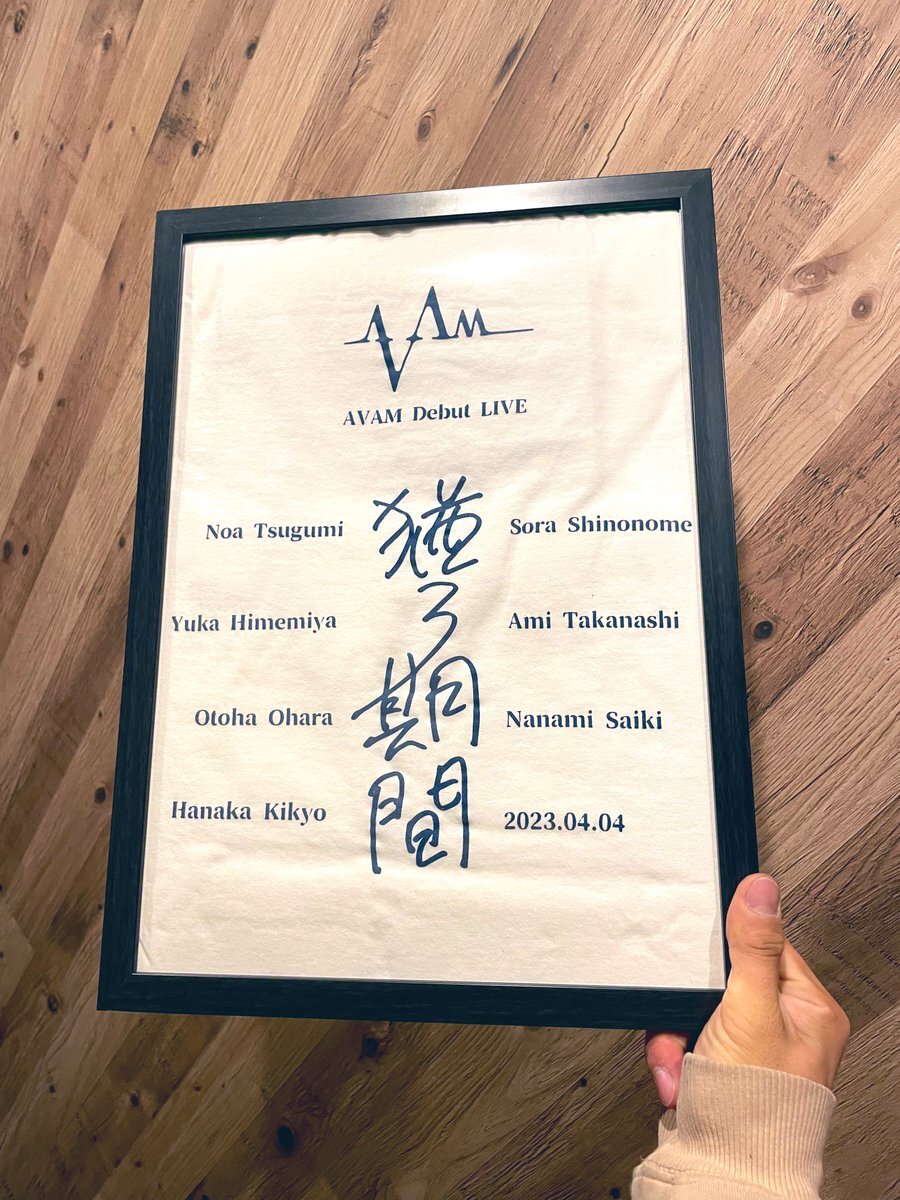 AVAM
AVAM Debut LIVE
猶予期間
Noa Tsugumi
Sora Shinonome
Yuka Himemiya
Ami Takanashi
Otoha Ohara
Nanami Saiki
Hanaka Kikyo
2023.04.04